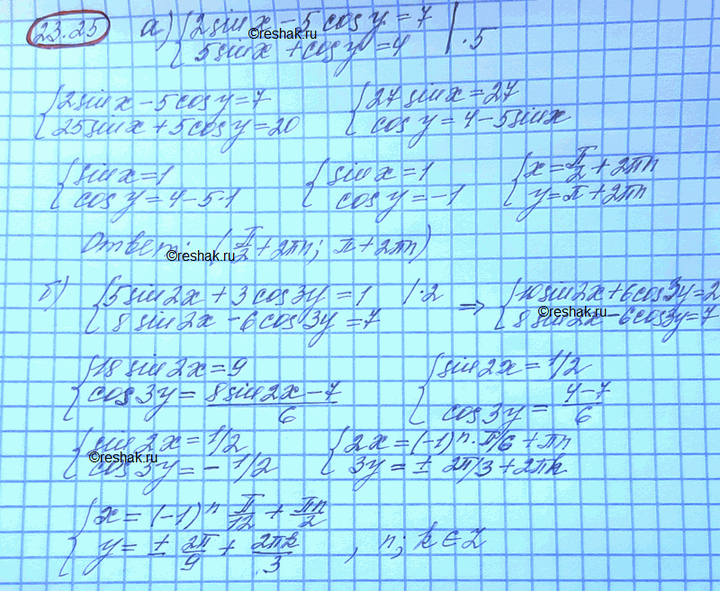 23.25 а) { 2sinx - 5cosy = 7
5sinx + cosy = 4 | ·5
©reshak.ru
{ 2sinx - 5cosy = 7
25sinx + 5cosy = 20
{ 27sinx = 27
cosy = 4 - 5sinx
{ sinx = 1
cosy = 4 - 5·1
{ sinx = 1
cosy = -1
{ x = π/2 + 2πn
y = π + 2πn
Ответ: (π/2 + 2πn; π + 2πn)
©reshak.ru
б) { 5sin2x + 3cos3y = 1 | ·2
8sin2x - 6cos3y = 7
⇒ { 10sin2x + 6cos3y = 2
8sin2x - 6cos3y = 7
{ 18sin2x = 9
cos3y = (8sin2x - 7)/6
{ sin2x = 1/2
cos3y = (4-7)/6
{ sin2x = 1/2
cos3y = - 1/2
©reshak.ru
{ 2x = (-1)ⁿ · π/6 + πn
3y = ± 2π/3 + 2πk
{ x = (-1)ⁿ π/12 + πn/2
y = ± 2π/9 + 2πk/3 , n; k ∈ Z